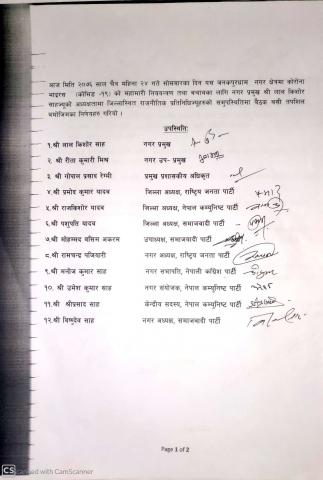 आज मिति २०७६ साल चैत्र महिना २४ गते सोमवारका दिन यस जनकपुरधाम नगर क्षेत्रमा कोरोना
भाइरस (कोभिड -१९) को महामारी नियन्त्रण तथा बचावका लागि नगर प्रमुख श्री लाल किशोर
साहज्यूको अध्यक्षतामा जिल्लास्थित राजनीतिक प्रतिनिधिज्यूहरुको समुपस्थितिमा बैठक बसी तपशिल
बमोजिमका निर्णयहरु गरियो ।
उपस्थितिः
१.श्री लाल किशोर साह नगर प्रमुख
२.श्री रीता कुमारी मिश्र नगर उप- प्रमुख
३.श्री गोपाल प्रसाद रेग्मी प्रमुख प्रशासकीय अधिकृत
४.श्री प्रमोद कुमार यादव जिल्ला अध्यक्ष, राष्ट्रिय जनता पार्टी
५.श्री राजकिशोर यादव जिल्ला अध्यक्ष, नेपाल कम्युनिष्ट पार्टी
६.श्री पशुपति यादव जिल्ला अध्यक्ष, समाजवादी पार्टी
७.श्री मोहम्मद वसिम अकरम उपाध्यक्ष, समाजवादी पार्टी
८.श्री रामचन्द्र पजियारी नगर अध्यक्ष, राष्ट्रिय जनता पार्टी
९.श्री मनोज कुमार साह नगर सभापति, नेपाली काँग्रेस पार्टी
१०. श्री उमेश कुमार साह नगर संयोजक, नेपाल कम्युनिष्ट पार्टी
११.श्री श्रीप्रसाद साह केन्द्रीय सदस्य, नेपाल कम्युनिष्ट पार्टी
१२.श्री विष्णुदेव साह नगर अध्यक्ष, समाजवादी पार्टी
Page 1 of 2
CS Scanned with CamScanner